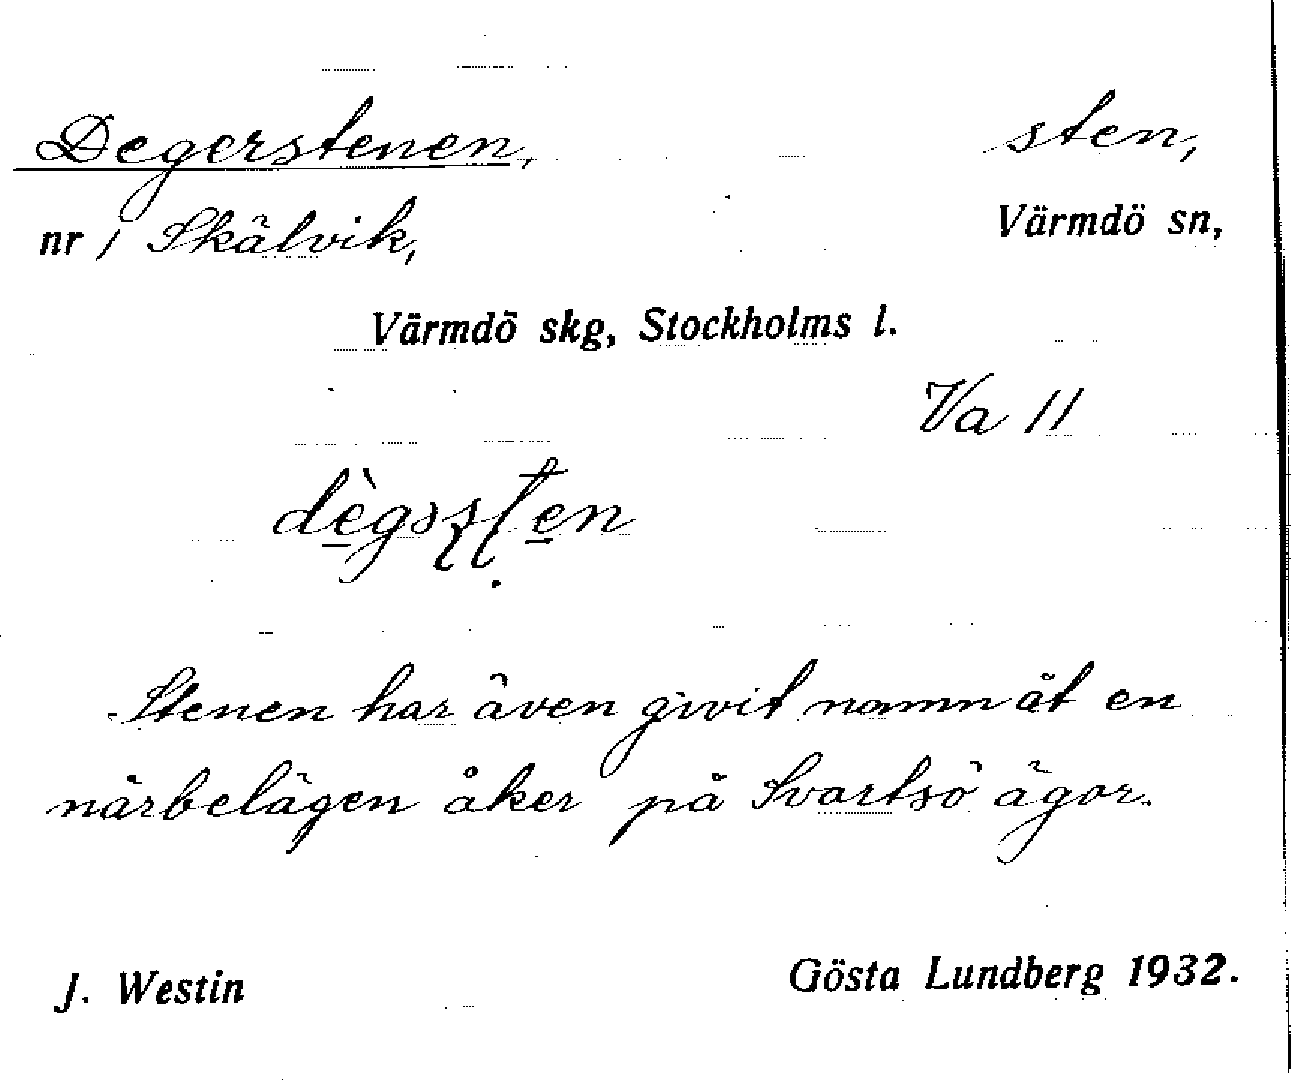 Degerstenen, sten,
nr 1 Skälvik, Värmdö sn,
Värmdö skg, Stockholms l.
Va 11
Stenen har även givit namn åt en
närbelägen åker på Svartsö ägor.
J. Westin Gösta Lundberg 1932.